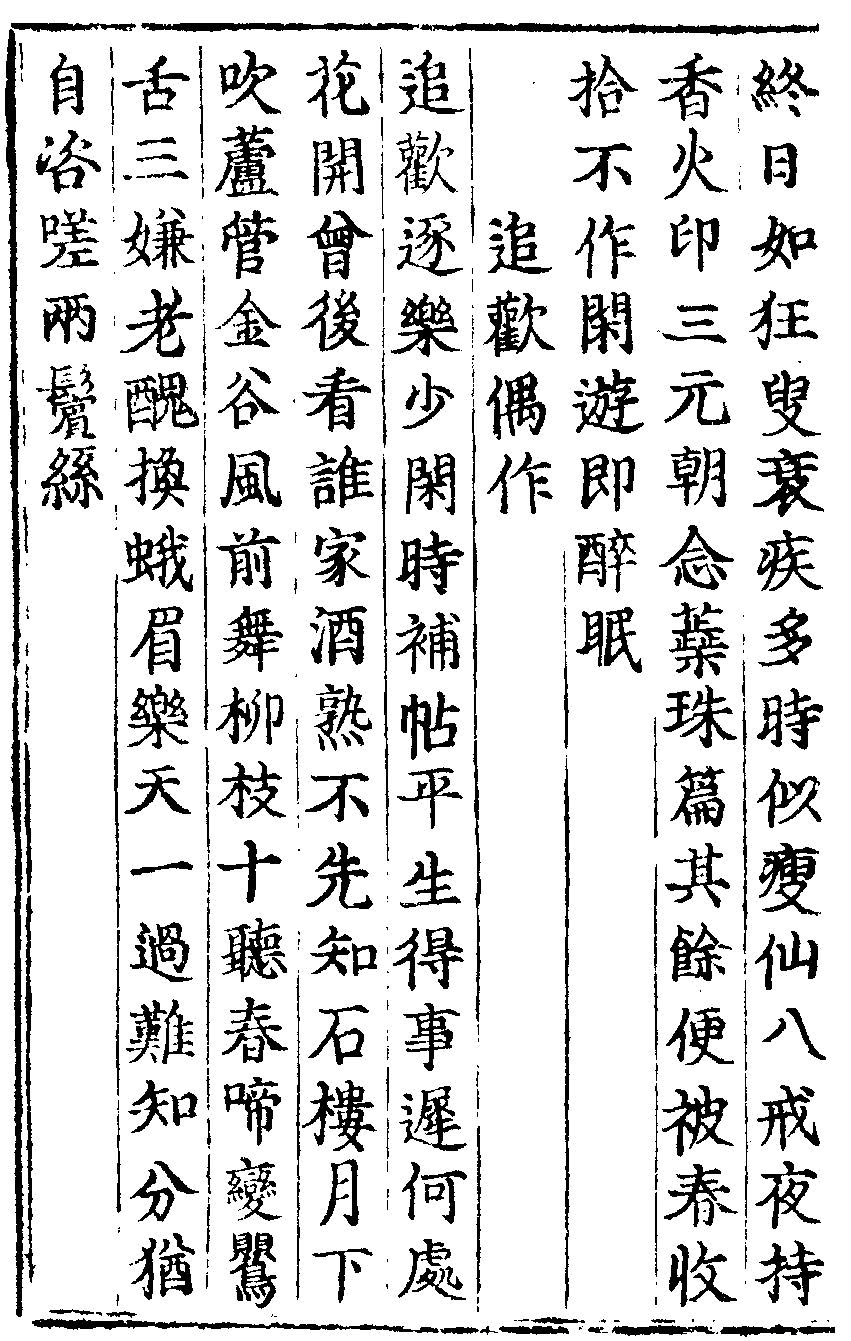 終日如狂叟衰疾多時似瘦仙八戒夜持
香火印三元朝念蘂珠篇其餘便被春收
拾不作閑遊即醉眠
追歡偶作
追歡逐樂少閑時補帖平生得事遲何處
花開曾後看誰家酒熟不先知石樓月下
吹蘆管金谷風前舞柳枝十聽春啼變鸎
舌三嫌老醜換蛾眉樂天一過難知分猶
自咨嗟兩鬢絲